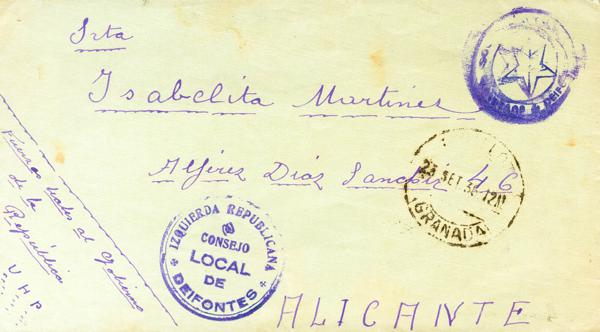 Srta
Isabelita Martinez
Alférez Díaz Sanchiz 46
ALICANTE
Fuerzas leales al Gobierno
de la
República
UHP
IZQUIERDA REPUBLICANA
CONSEJO
LOCAL
DE
DEIFONTES
23 SET 36 12M
(GRANADA)